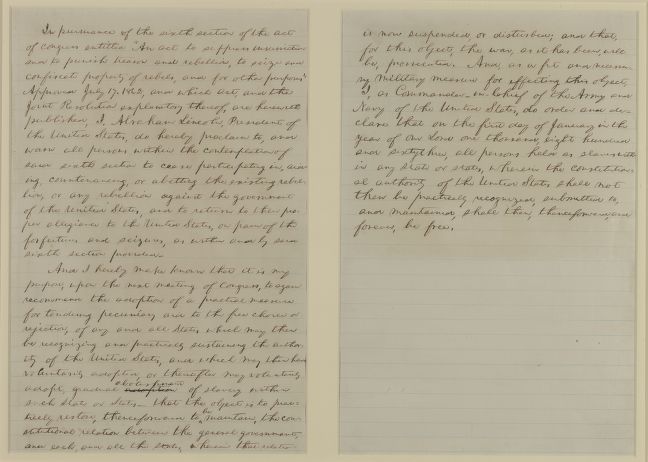 In pursuance of the sixth section of the act
of congress entitled "An act to suppress insurrection
and to punish treason and rebellion, to seize and
confiscate property of rebels, and for other purposes"
Approved July 17, 1862, and which act, and the
Joint Resolution explanatory thereof, are herewith
published, I, Abraham Lincoln, President of
the United States, do hereby proclaim to, and
warn all persons within the contemplation of
said sixth section to cease participating in, aid-
ing, countenancing, or abetting the existing rebel-
lion, or any rebellion against the government
of the United States, and to return to their pro-
per allegiance to the United States, on pain of the
forfeitures and seizures, as within and by said
sixth section provided.
And I hereby make known that it is my
purpose, upon the next meeting of Congress, to again
recommend the adoption of a practical measure
for tendering pecuniary aid to the free choice or
rejection, of any and all States which may then
be recognizing and practically sustaining the author-
ity of the United States, and which may then have
voluntarily adopted, or thereafter may voluntarily
adopt, gradual abolishment of slavery within
such State or States. that the object is to prac-
tically restore, thenceforward to be maintain, the con-
stitutional relation between the general government,
and each, and all the states, wherein that relation
is now suspended, or disturbed; and that,
for this object, the war, as it has been, will
be, prosecuted. And, as a fit and necessa-
ry military measure for effecting this object,
I, as Commander-in-Chief of the Army and
Navy of the United States, do order and de-
clare that on the first day of January in the
year of our Lord one thousand, eight hundred
and sixtythree, all persons held as slaves within
in any state or states, wherein the constitution-
al authority of the United States shall not
then be practically recognized, submitted to,
and maintained, shall then, thenceforward, and
forever, be free.